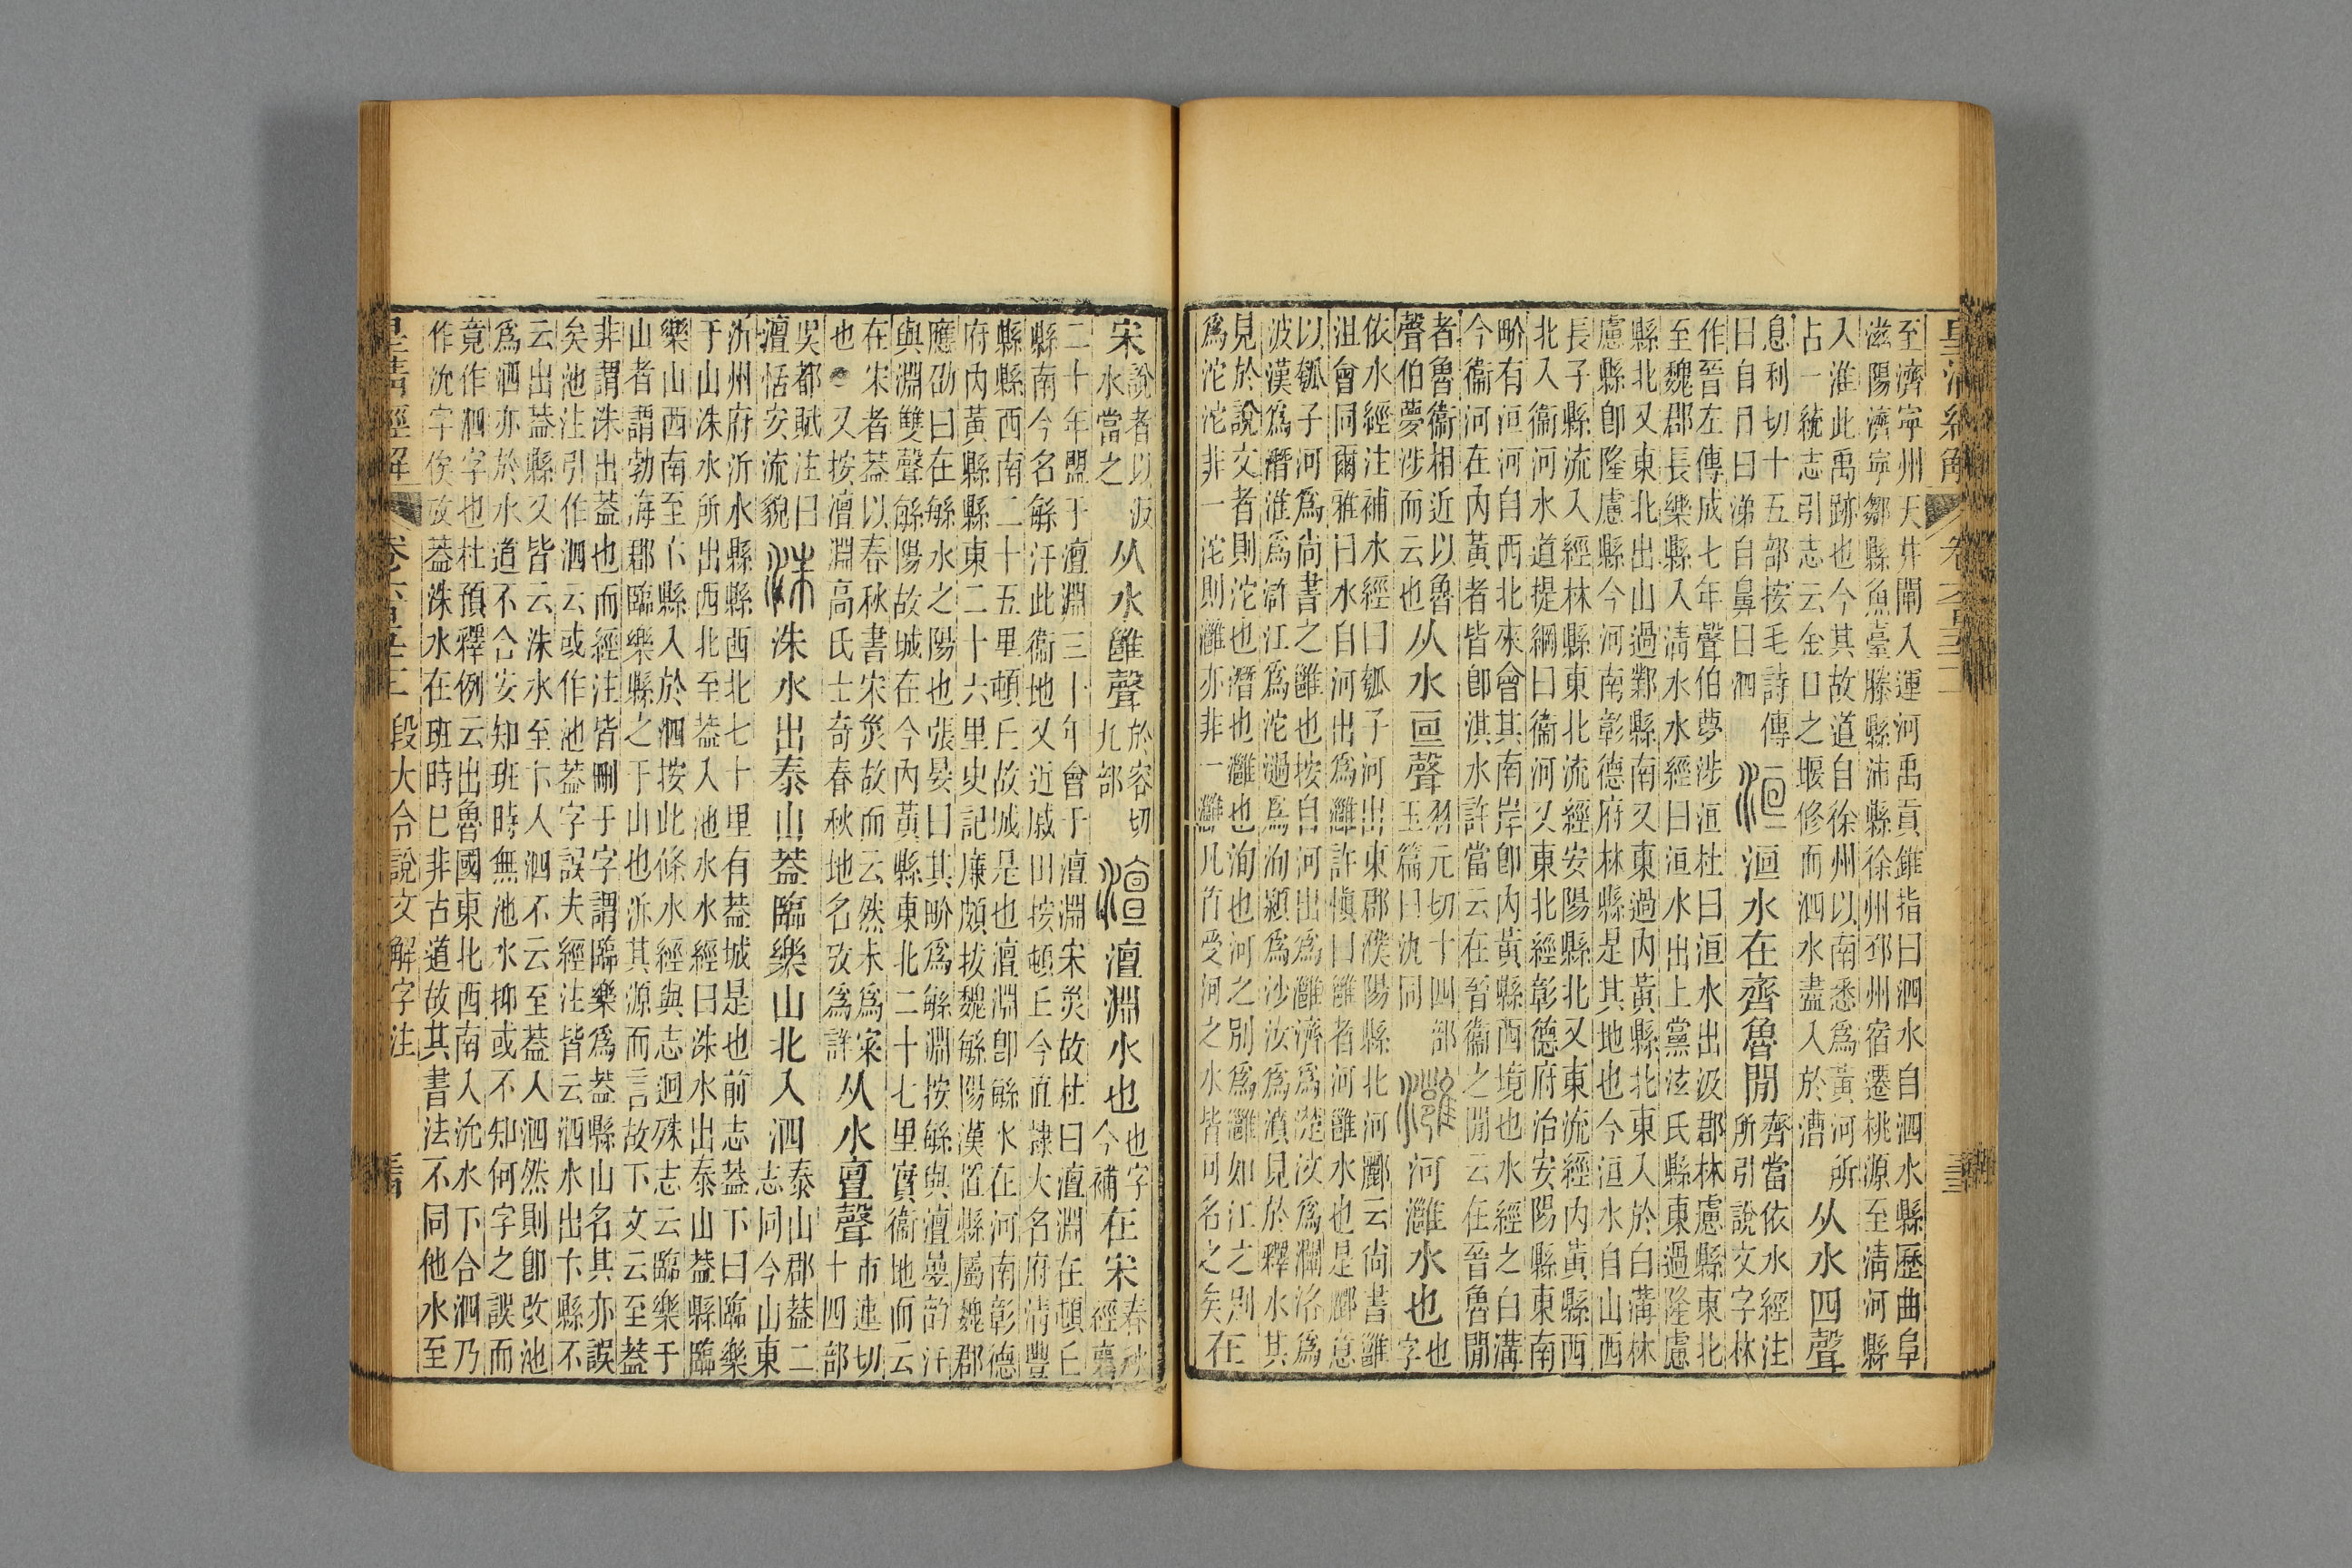 至濟寧州天井閘入運河禹貢錐指曰泗水自泗水縣歷曲阜
滋陽濟寧鄒縣魚臺滕縣沛縣徐州邳州宿遷桃源至清河縣
入淮此禹跡也今其故道自徐州以南悉爲黃河所
占一統志引志云金口之堰修而泗水盡入於漕
从水四聲
息利切十五部按毛詩傳
曰自目曰涕自鼻曰泗
洹
洹水在齊魯閒
齊當依水經注
所引說文字林
作晉左傳成七年聲伯夢涉洹杜曰洹水出汲郡林慮縣東北
至魏郡長樂縣入清水水經曰洹水出上黨泫氏縣東過隆慮
縣北又東北出山過鄴縣南又東過內黃縣北東入於白溝林
慮縣卽隆慮縣今河南彰德府林縣是其地也今洹水自山西
長子縣流入經林縣東北流經安陽縣北又東流經內黃縣西
北入衞河水道提綱曰衞河又東北經彰德府治安陽縣東南
畍有洹河自西北來會其南岸卽內黃縣西境也水經之白溝
今衞河在內黃者皆卽淇水許當云在晉衞之閒云在晉魯閒
者魯衞相近以魯
聲伯夢涉而云也
从水亘聲
羽元切十四部
玉篇曰氿同
灉
河灉水也
也
字
依水經注補水經曰瓠子河出東郡濮陽縣北河酈云尚書雝
沮會同爾雅曰水自河出爲灉許愼曰雝者河雝水也是酈意
以瓠子河爲尚書之雝也按自河出爲灉濟爲濋汶爲瀾洛爲
波漢爲潛淮爲滸江爲沱過爲洵潁爲沙汝爲濆見於釋水其
見於說文者則沱也潛也灉也洵也河之別爲灉如江之別
爲沱沱非一沱則灉亦非一灉凡首受河之水皆可名之矣
在
宋
說者以汳
水當之
从水雝聲
於容切
九部
澶
澶淵水也
也字
今補
在宋
春秋
經襄
二十年盟于澶淵三十年會于澶淵宋災故杜曰澶淵在頓丘
縣南今名繁汙此衞地又近戚田按頓丘今直隷大名府清豐
縣縣西南二十五里頓丘故城是也澶淵卽繁水在河南彰德
府內黃縣縣東二十六里史記廉頗拔魏繁陽漢置縣屬魏郡
應劭曰在繁水之陽也張晏曰其畍爲繁淵按繁與澶曡韵汙
與淵雙聲繁陽故城在今內黃縣東北二十七里實衞地而云
在宋者葢以春秋書宋災故而云然未爲宷
也又按澶淵高氏士奇春秋地名攷爲詳
从水亶聲
市連切
十四部
吳都賦注曰
澶恬安流貌
洙
洙水出泰山葢臨樂山北入泗
泰山郡葢二
志同今山東
沂州府沂水縣縣西北七十里有葢城是也前志葢下曰臨樂
于山洙水所出西北至葢入池水水經曰洙水出泰山葢縣臨
樂山西南至卞縣入於泗按此條水經與志迥殊志云臨樂于
山者謂勃海郡臨樂縣之于山也泝其源而言故下文云至葢
非謂洙出葢也而經注皆刪于字謂臨樂爲葢縣山名其亦誤
矣池注引作泗云或作池葢字誤夫經注皆云泗水出卞縣不
云出葢縣又皆云洙水至卞人泗不云至葢人泗然則卽改池
爲泗亦於水道不合安知班時無池水抑或不知何字之誤而
竟作泗字也杜預釋例云出魯國東北西南入沇水下合泗乃
作沇字俟攷葢洙水在班時已非古道故其書法不同他水至
皇清經解
段大令說文解字注